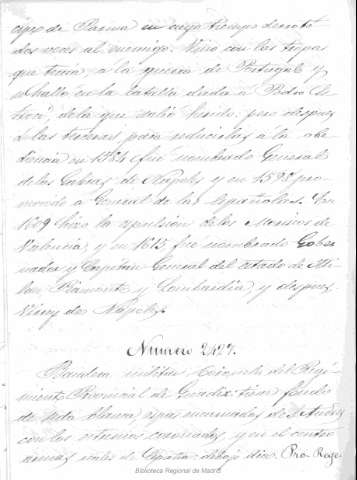 cipe de Parma en cuyo tiempo derrotó
dos veces al enemigo. Vino con las tropas
que tenia, a la guerra de Portugal y
se halló en la batalla dada a Pedro
de la que salió herido, pero despues
a las Terceras para reducirlas á la obe
diencia en 1584 fué nombrado General
de las Galeras de Napoles y en 1595 pro-
movido a General de las Españolas. En
1609 hizo la espulsion de los Moriscos de
Valencia, y en 1615 fue nombrado Gober
nador y Capitán General del estado de Mi-
lan Piamonte y Lombardia, y despues
Virey de Napoles.
Numero 2427.
Bandera inutilizada del Regi-
miento Provincial de Guadix: tiene fondo
de seda blanca, aspas encarnadas de Sn Andres
con los estremos coronados, y en el centro
armas reales de España: debajo dice. Pro Rege
Biblioteca Regional de Madrid